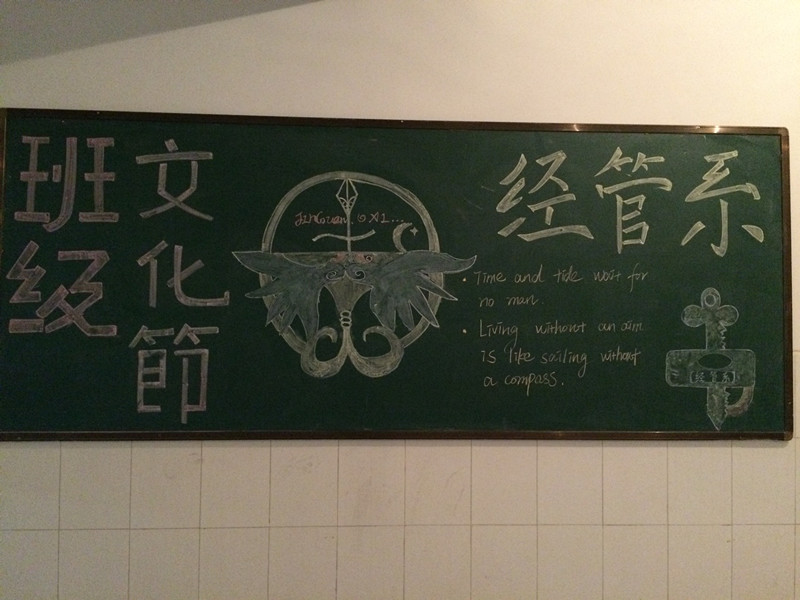 班级
文化節
JinGuan. XI...
经管系
• Time and tide wait for
no man.
• Living without an aim
is like sailing without
a compass.
经管系